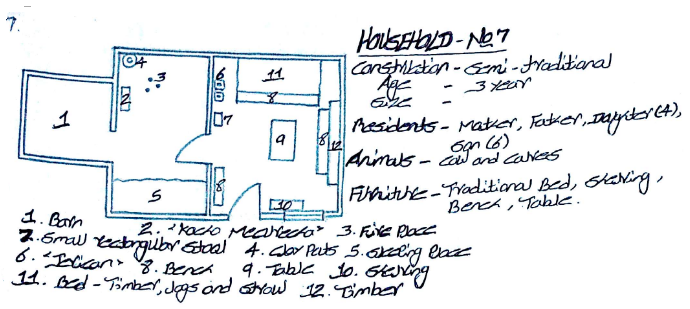 7.
HOUSEHOLD - No 7
Constitution - Semi-traditional
Age - 3 year
Size -
Residents - Mother, Father, Daughter(4),
Son (6)
Animals - Cow and calves
Furniture - Traditional Bed, Shelving,
Bench, Table.
4
3
2
1
5
6
7
11
8
9
8
12
8
10
1. Barn 2. 3. Fire Place
2. Small rectangular stool 4. Clay Pots 5. Sleeping Place
6. 8. Bench 9. Table 10. Shelving
11. Bed - Timber, logs and straw 12. Timber